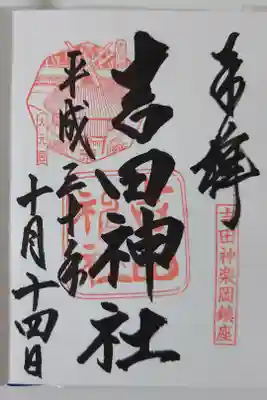 奉拝
吉田神楽岡鎮座
吉田神社
平成三十年
十月十四日